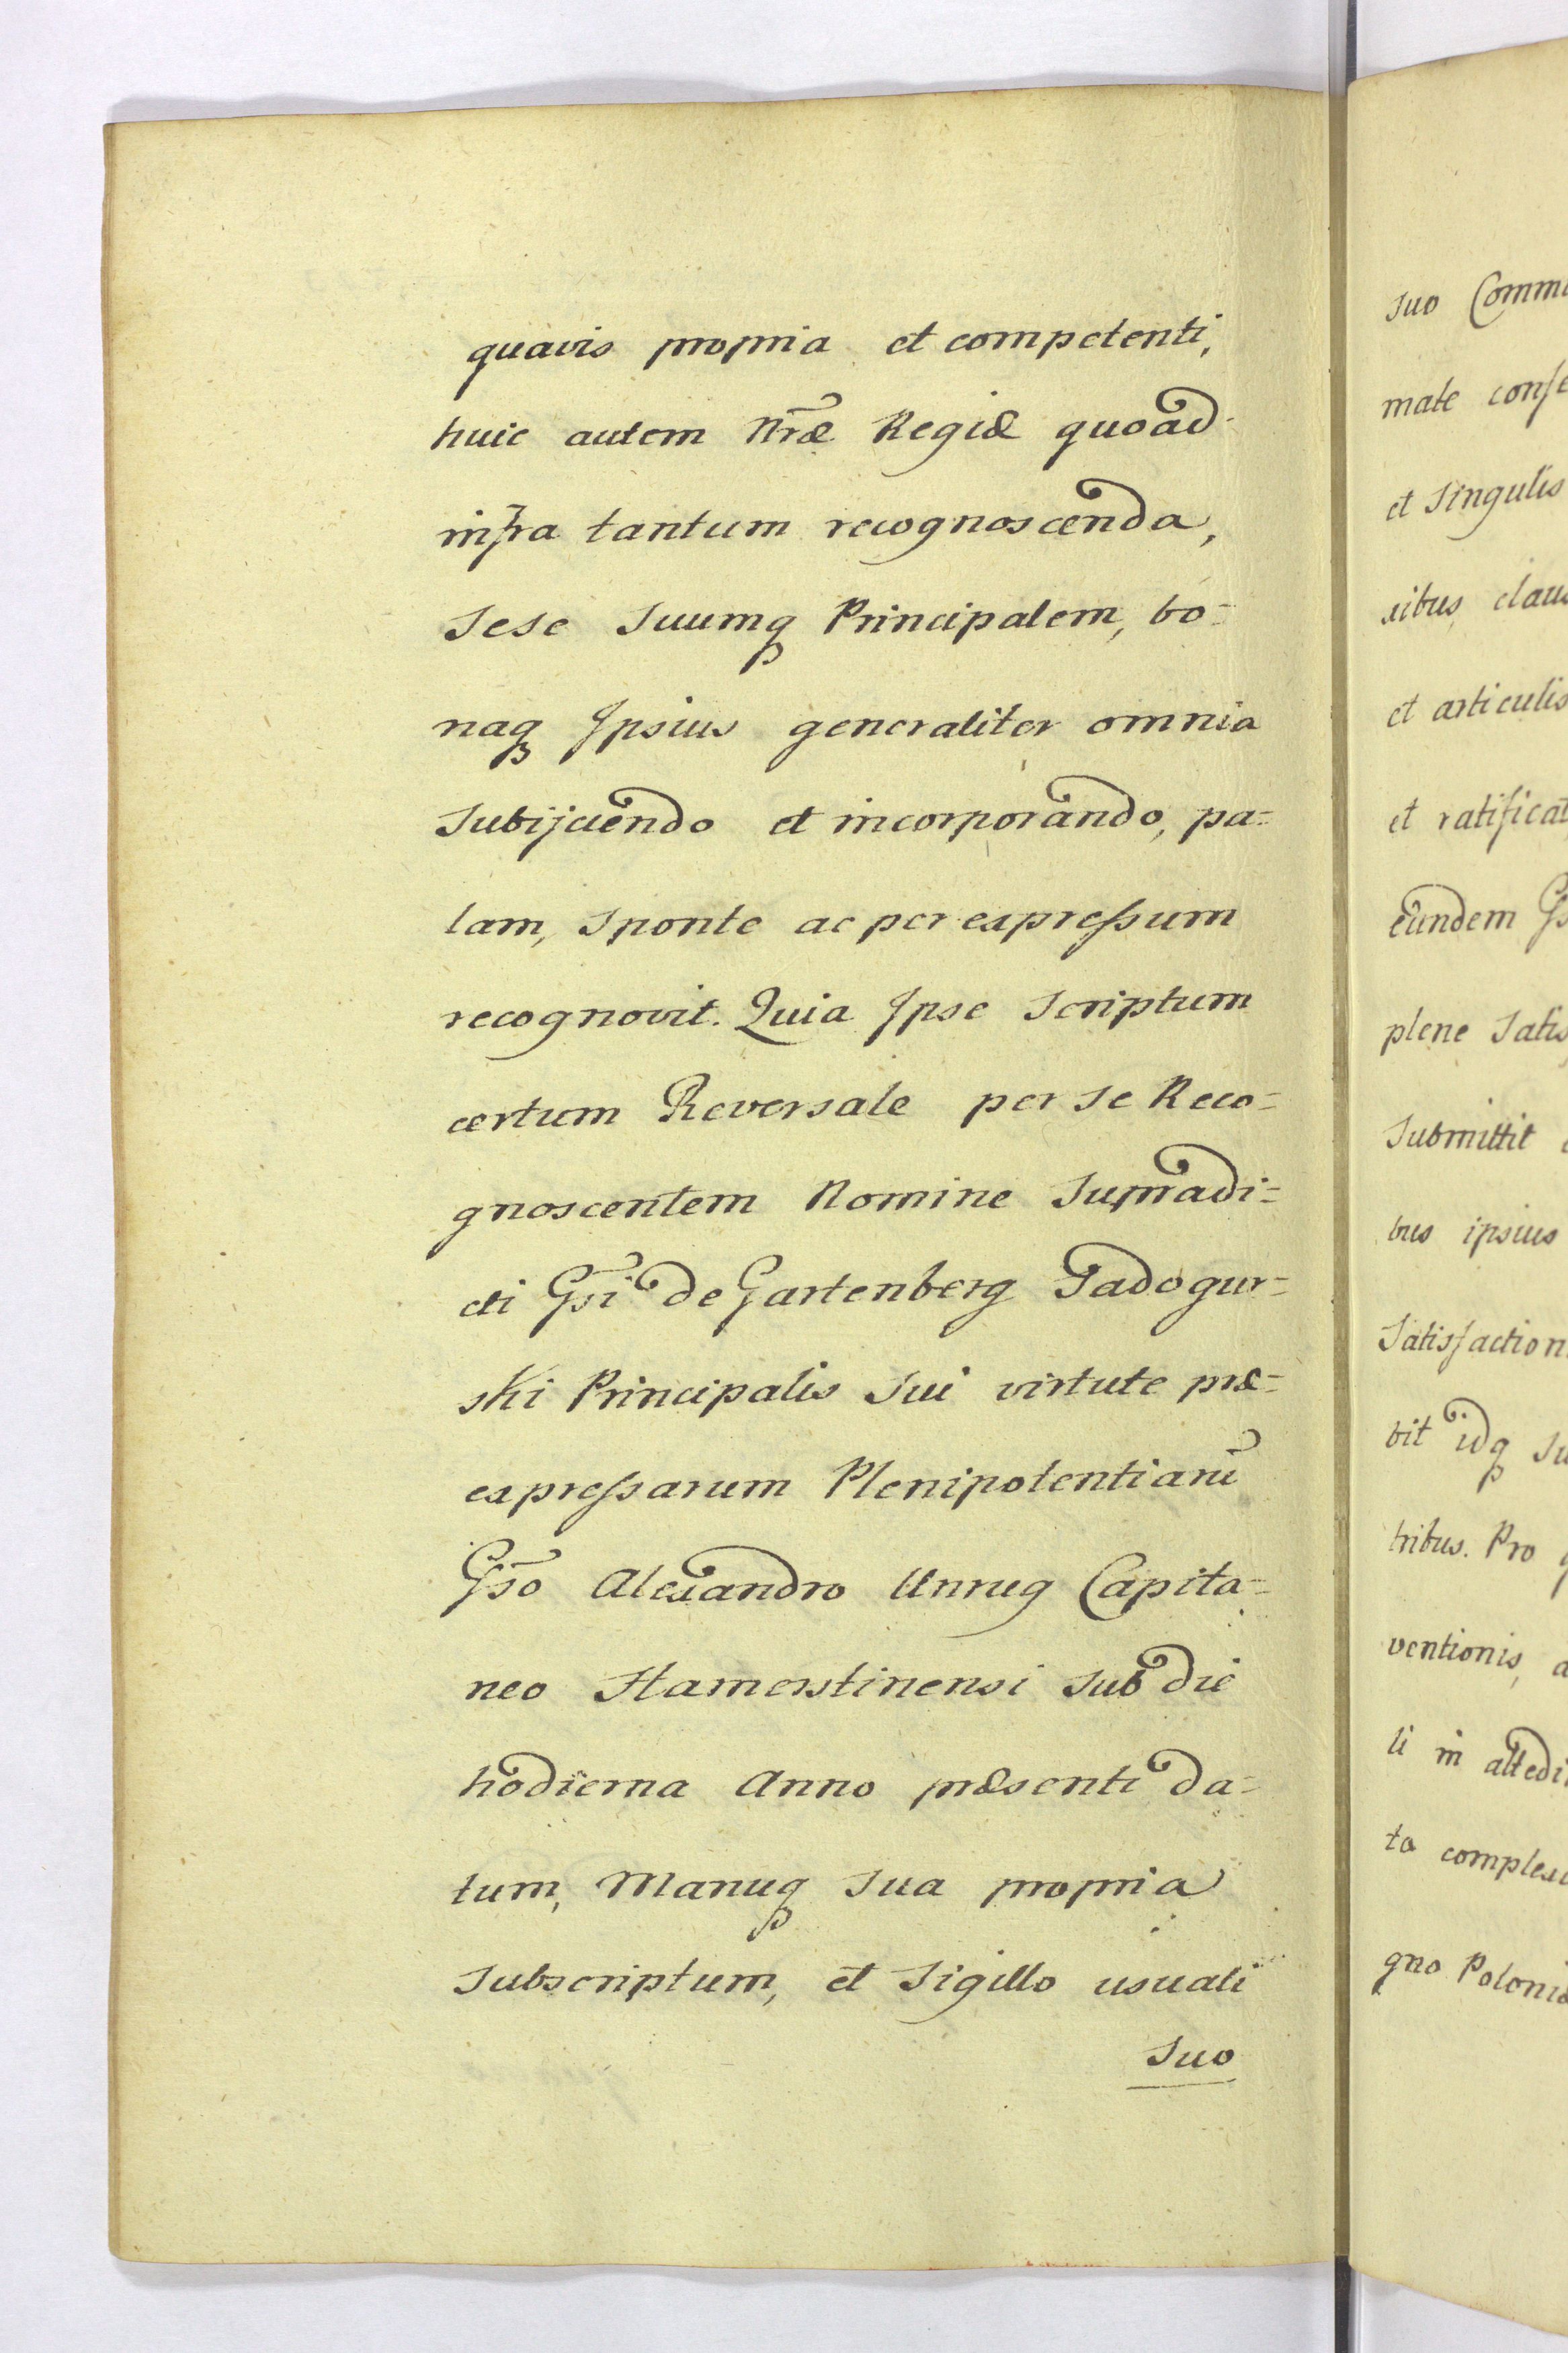 quavis propria et competenti,
huic autem Nr̃æ Regiæ quoad
infra tantum recognoscenda,
Sese Suumq Principalem, bo=
naq Ipsius generaliter omnia
Subijciendo et incorporando, pa=
lam, Sponte ac per expressum
recognovit. Quia Ipse Scriptum
certum Reversale per Se Reco=
gnoscentem Nomine Supradi=
cti Gsi de Gartenberg Sadogur=
ski Principalis Sui virtute præ=
expressarum Plenipotentiarũ
Gso Alexandro Unrug Capita=
neo Hamerstinensi Sub die
hodierna Anno præsenti da=
tum, Manuq Sua propria
Subscriptum, et Sigillo usuali
Suo
suo
mate
et Singulis
xibus
et articulis
et
eundem
plene
Submittit
bus ipsius
bit idq
tribus. Pro
ventionis,
li in
ta
gno